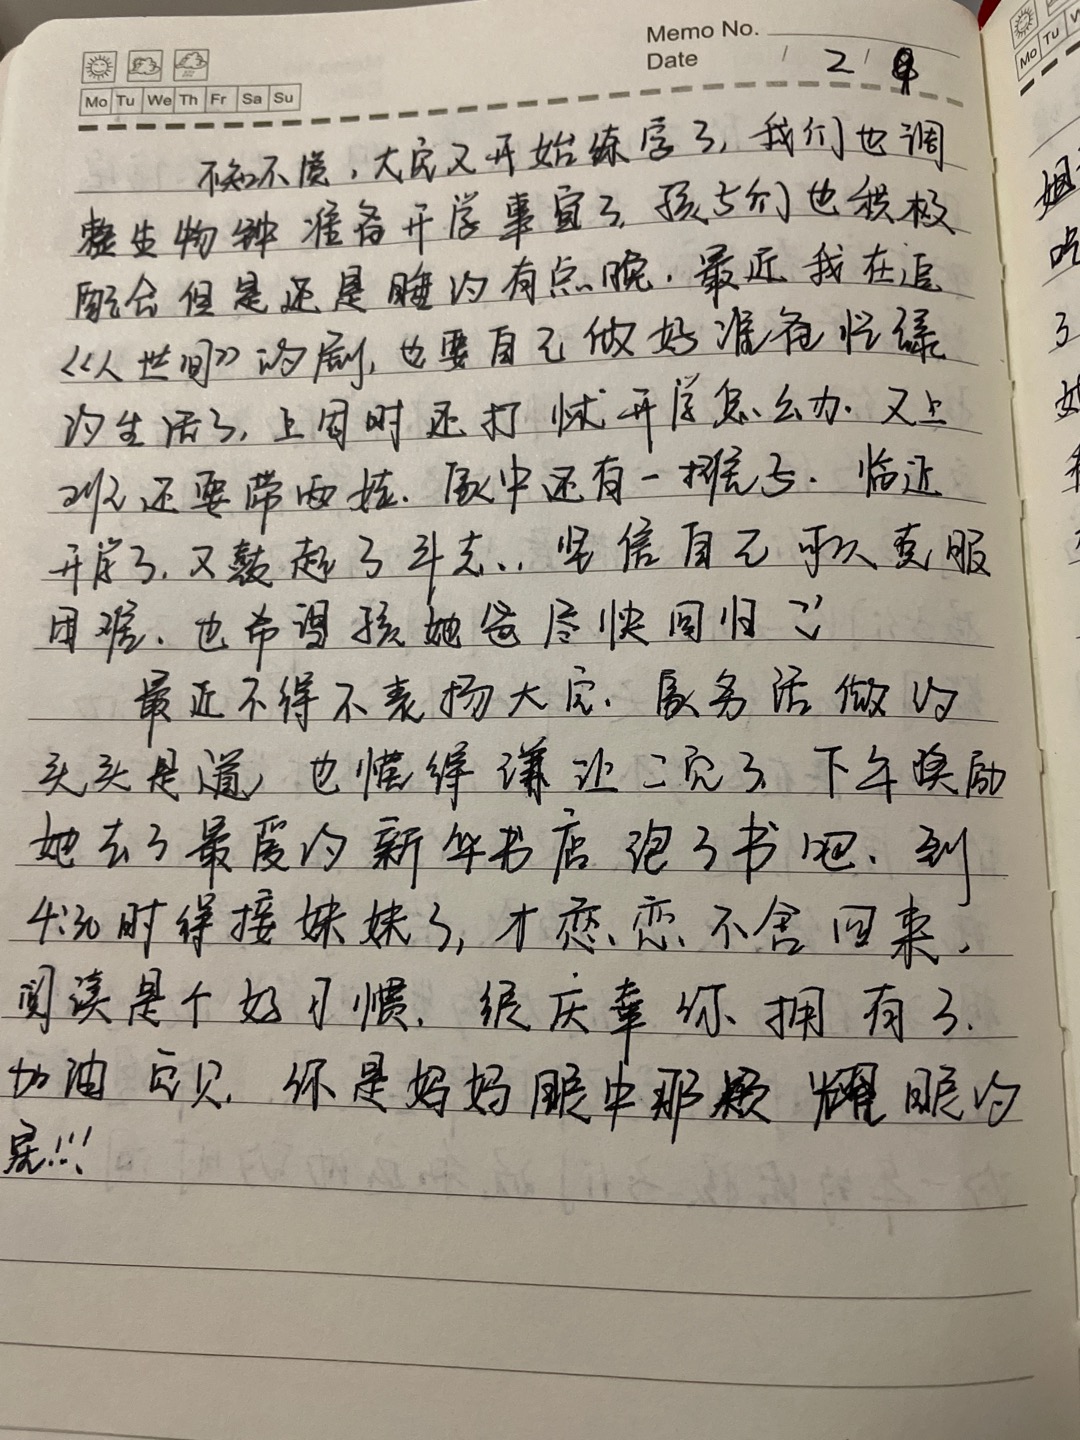 Memo No.
Date / 2 / 9
Mo Tu We Th Fr Sa Su
不知不觉，大宝又开始练字了，我们也调
整生物钟准备开学事宜了，孩子们也积极
配合但是还是睡的有点晚．最近我在追
《人世间》的剧，也要自己做好准备忙碌
的生活了，上周时还打怵开学怎么办．又上
班还要带两娃．家中还有一摊子．临近
开学了．又鼓起了斗志．．坚信自己可以克服
困难．也希望孩她爸尽快回归
最近不得不表扬大宝．家务活做的
头头是道，也懂得谦让二宝了．下午奖励
她去了最爱的新华书店泡了书吧．到
4:30时得接妹妹了，才恋恋不舍回来．
阅读是个好习惯．很庆幸你拥有了．
加油宝贝．你是妈妈眼中那颗耀眼的
星！！！
Mo Tu